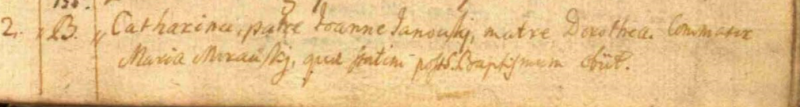 2. B. Catharina, patre Joanne Janousky, matre Dorothea. Commater
Maria Morausky, quæ statim post Baptismum obiit.